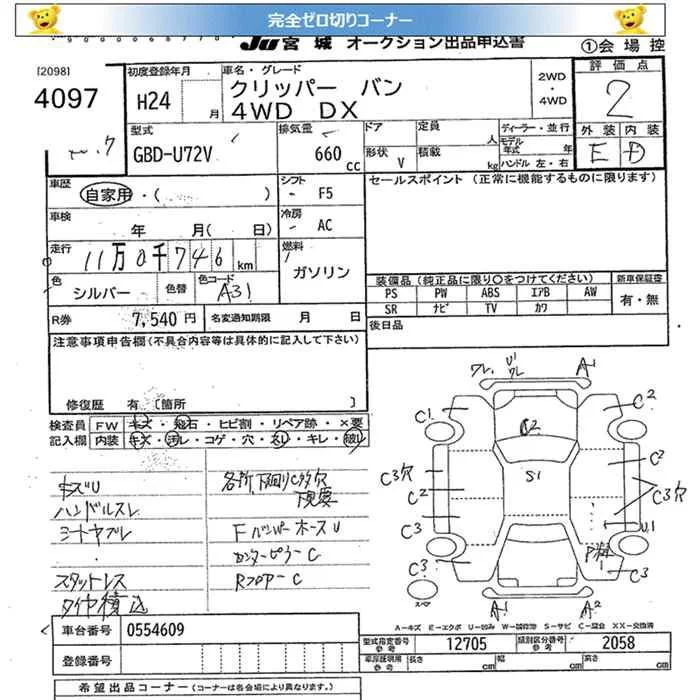 完全ゼロ切りコーナー
JU宮城 オークション出品申込書
①会場控
[2098]
4097
初度登録年月
H24 月
車名・グレード
クリッパー バン
4WD DX
2WD・4WD
評価点
2
外装 内装
E D
型式
GBD-U72V
排気量
660 cc
ドア
形状 V
定員 人
積載 kg
ディーラー・並行
モデル年式 年
ハンドル 左・右
車歴
自家用・( )
シフト
- F5
セールスポイント (正常に機能するものに限ります)
車検
年 月( 日)
冷房
- AC
走行
11万0千746 km
燃料
ガソリン
色
シルバー
色替
色コード
A31
装備品(純正品に限り○をつけてください)
新車保証書
PS PW ABS エアB AW
有・無
SR ナビ TV カワ
R券
7,540 円
名変通知期限 月 日
後日品
注意事項申告欄(不具合内容等は具体的に記入して下さい)
修復歴 有 [箇所 ]
検査員 FW キズ・飛石・ヒビ割・リペア跡・×要
記入欄 内装 キズ・汚レ・コゲ・穴・スレ・キレ・破レ
キズU
ハンドルスレ
シートヤブレ
スタットレス
タイヤ積込
各所、下廻りC多穴
下見要
Fバンパー ホースU
センターピラーC
RフロアーC
ワレ U1 ワレ A1
C1 C2
C2
S1
C3穴 C2 C2 C3穴
C3 U1
C3
A1 A2
スペア
A-キズ E-エクボ U-凹み W-補修跡 S-サビ C-腐食 XX-交換済
車台番号 0554609
登録番号
型式指定番号 参考 12705
類別区分番号 参考 2058
車庫証明用 参考 長さ cm 幅 cm 高さ cm
希望出品コーナー (コーナーは各会場により異なります。)